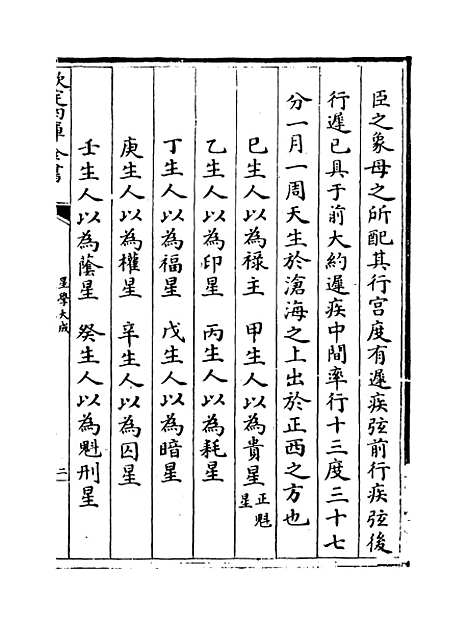 臣之象母之所配其行宫度有遲疾弦前行疾弦後
行遲已具于前大約遲疾中間率行十三度三十七
分一月一周天生於滄海之上出於正西之方也
巳生人以為禄主　甲生人以為貴星正魁星
乙生人以為印星　丙生人以為耗星
丁生人以為福星　戊生人以為暗星
庚生人以為權星　辛生人以為囚星
壬生人以為蔭星　癸生人以為魁刑星
欽定四庫全書
星學大成
二